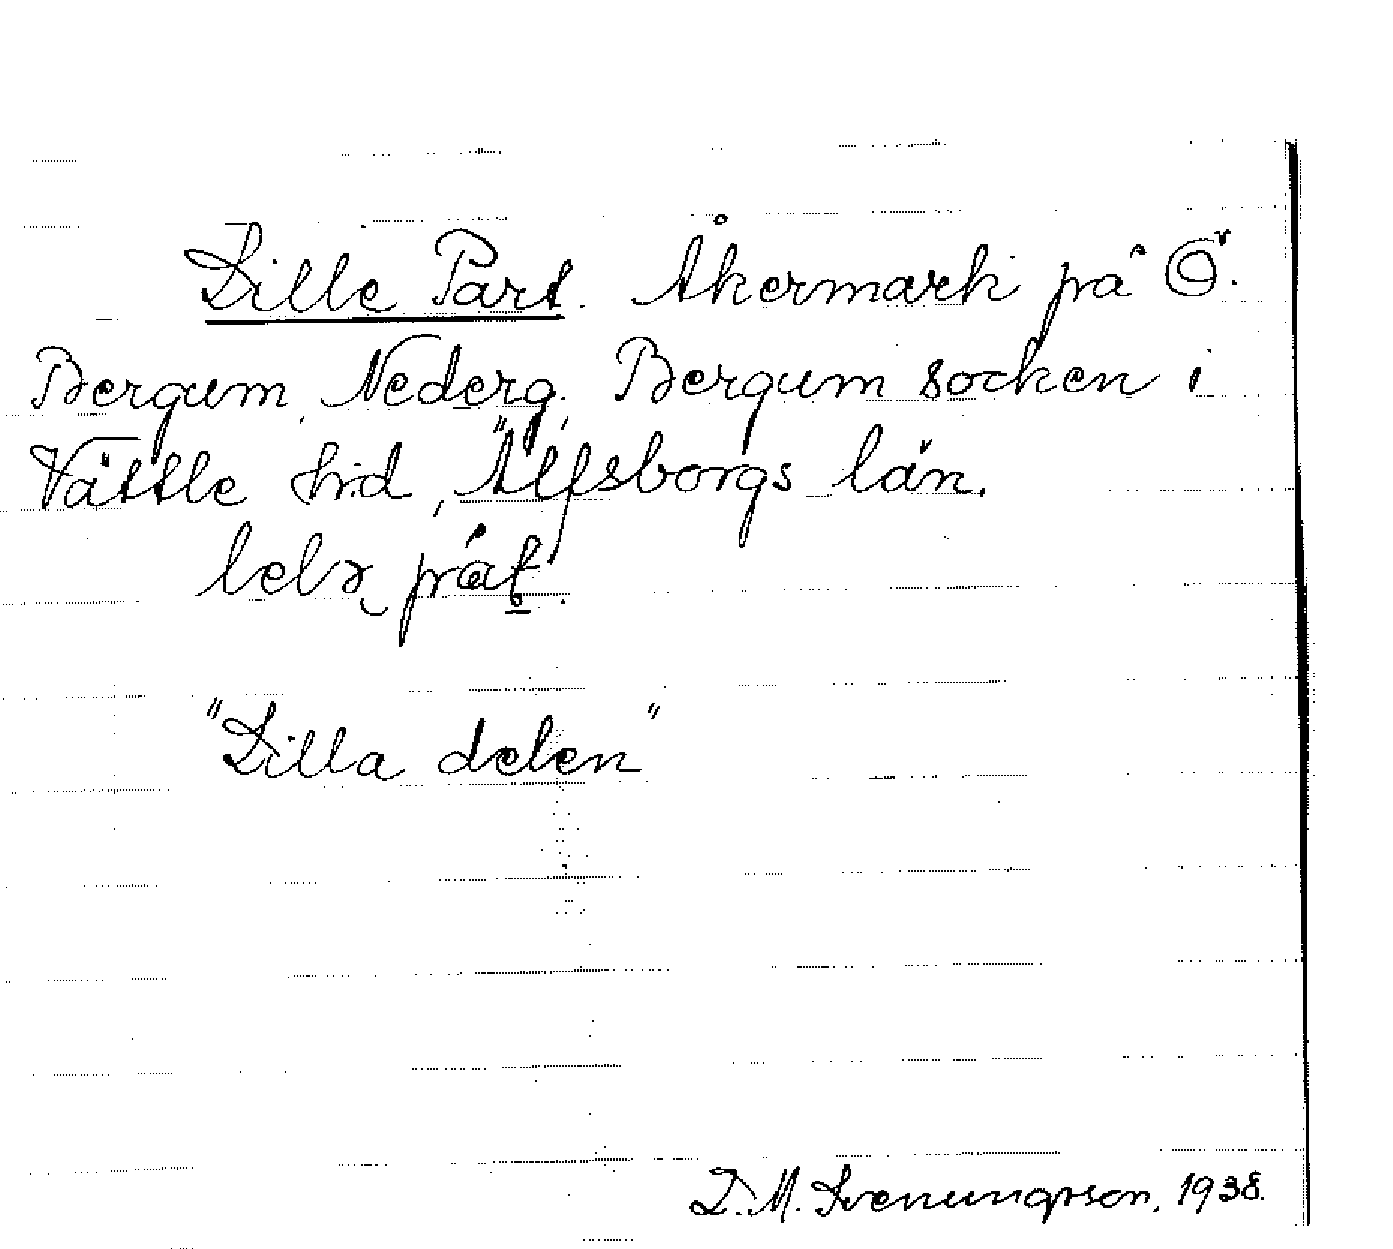 Lille Part. Åkermark på Ö.
Bergum, Nederg. Bergum socken i
Vättle hrd, Älfsborgs län.

"Lilla delen"
D. M. Svenungsson, 1938.